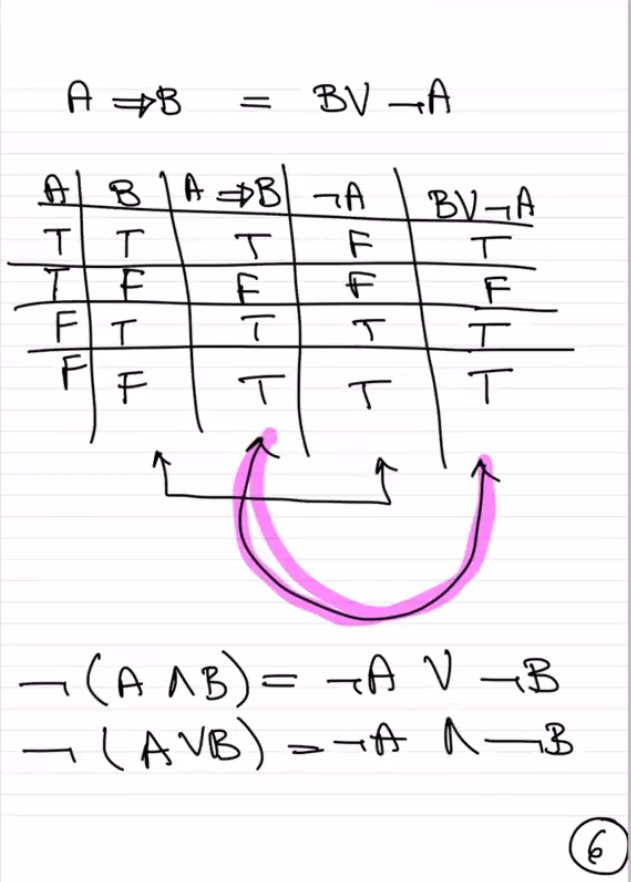 A ⇒ B = B ∨ ¬A
A B A ⇒ B ¬A B ∨ ¬A
T T T F T
T F F F F
F T T T T
F F T T T
¬ (A ∧ B) = ¬A ∨ ¬B
¬ (A ∨ B) = ¬A ∧ ¬B
6